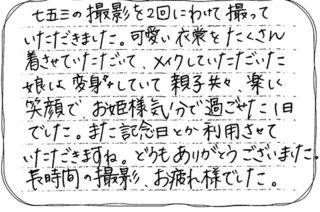 七五三の撮影を2回にわけて撮って
いただきました。可愛い衣裳をたくさん
着させていただいて、メイクしていただいた
娘は変身していて親子共々、楽しく
笑顔でお姫様気分で過ごせた1日
でした。また記念日とか利用させて
いただきますね。どうもありがとうございました。
長時間の撮影、お疲れ様でした。